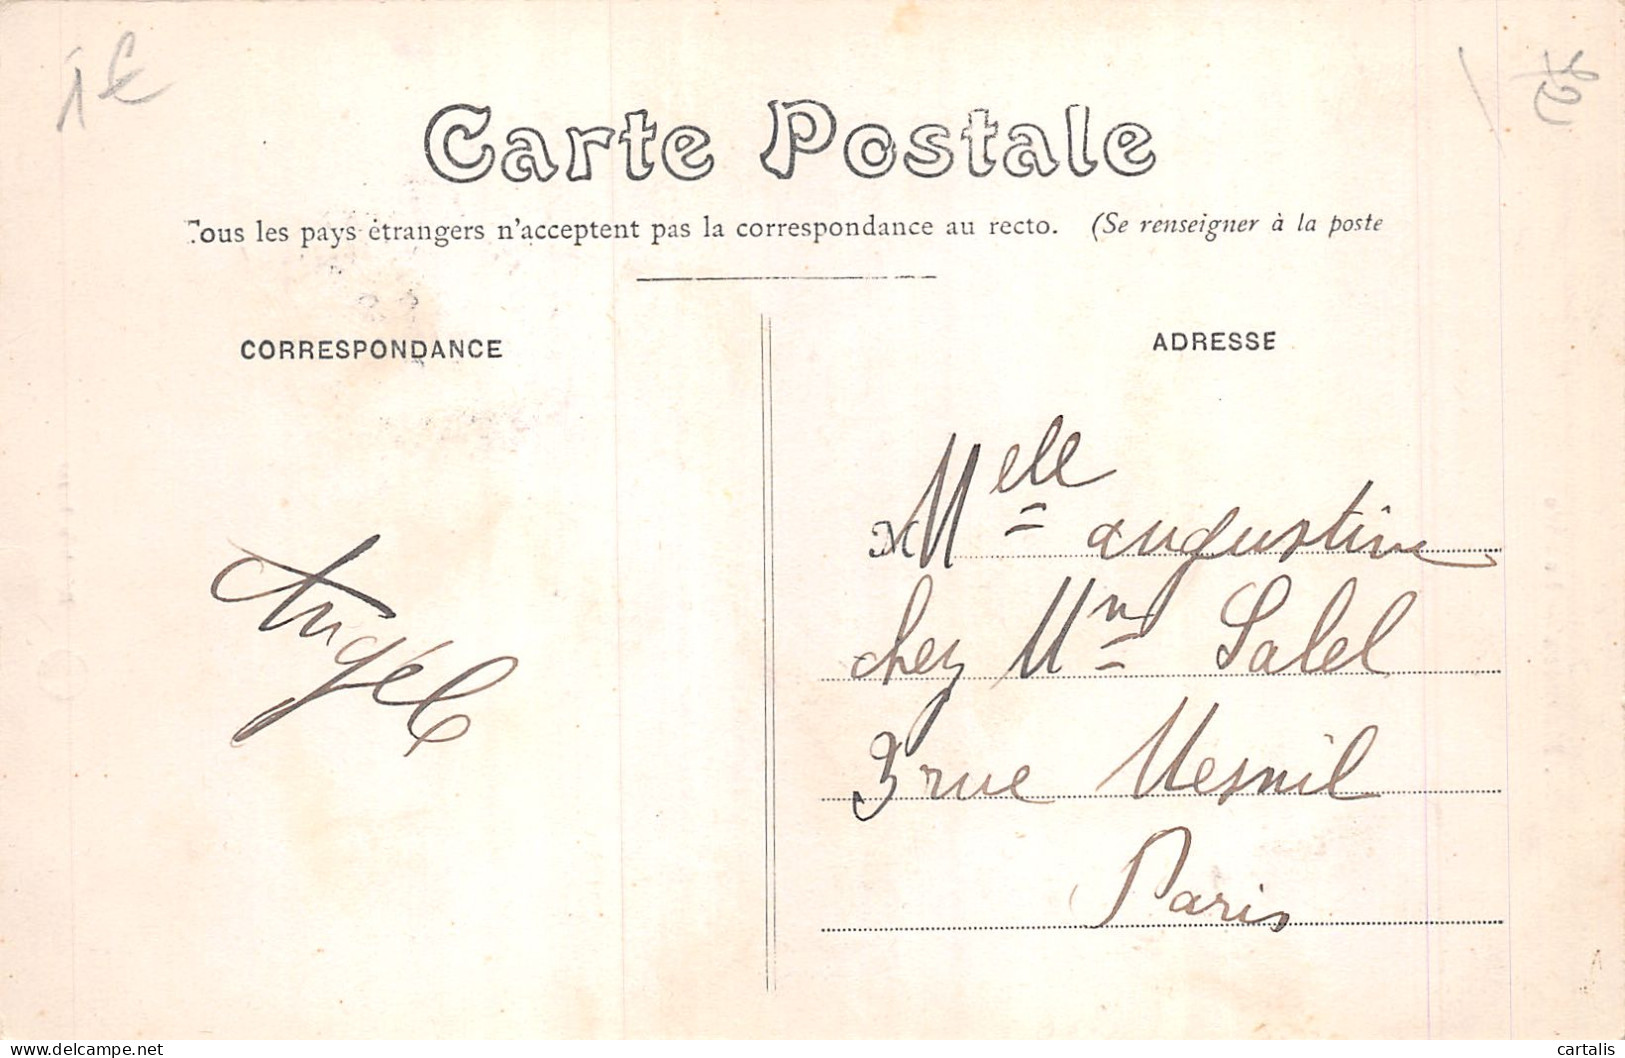 1€
Carte Postale
Tous les pays étrangers n'acceptent pas la correspondance au recto. (Se renseigner à la poste
CORRESPONDANCE
ADRESSE
Angèle
M Melle augustine
chez Mme Salel
3 rue Mesnil
Paris
delcampe.net
cartalis